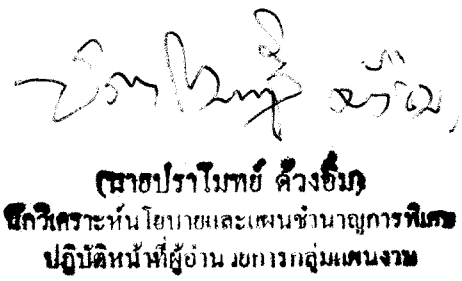 (นายปราโมทย์ ด้วงอิ่ม)
นักวิเคราะห์นโยบายและแผนชำนาญการพิเศษ
ปฏิบัติหน้าที่ผู้อำนวยการกลุ่มแผนงาน